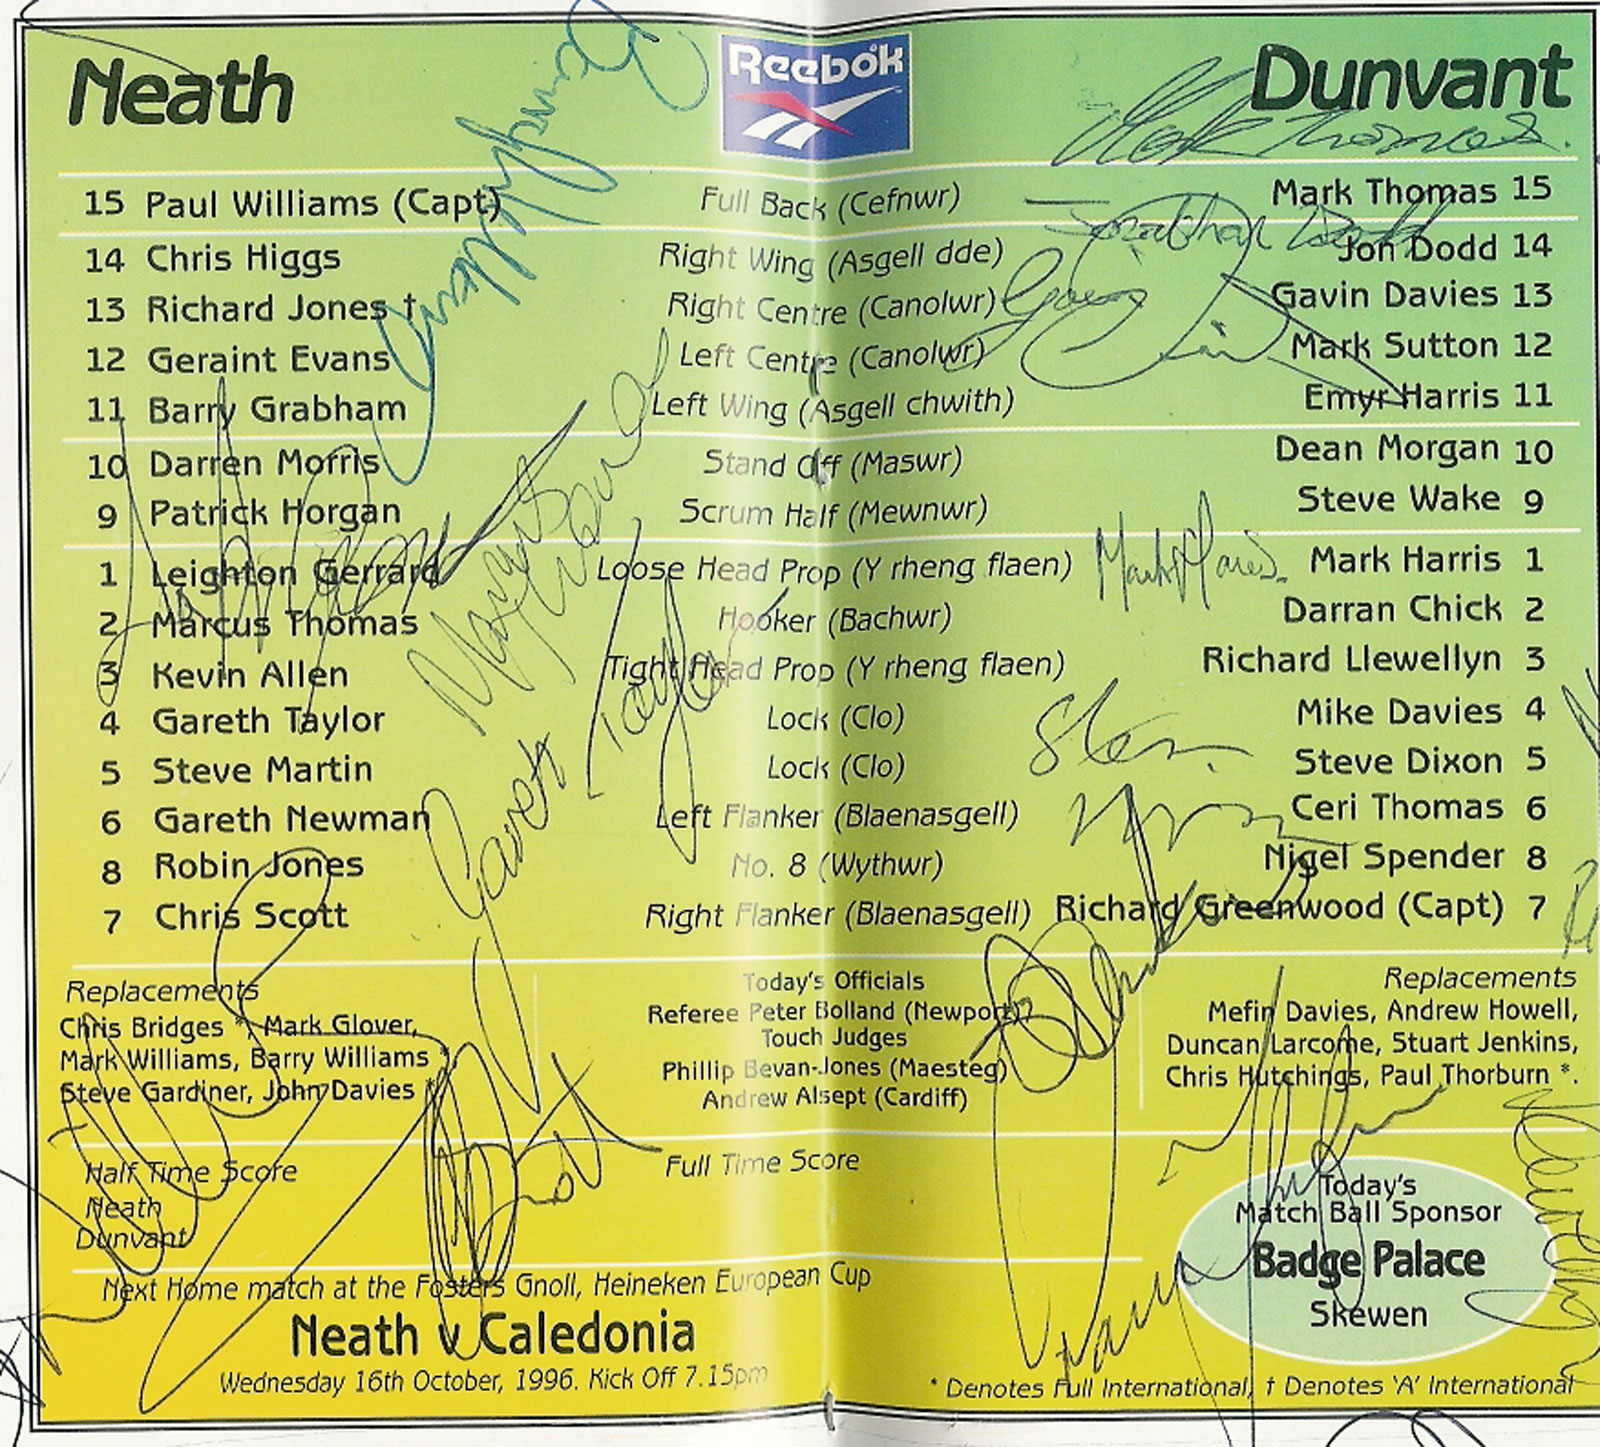 Neath Reebok Dunvant
Mark Thomas.
15 Paul Williams (Capt) Full Back (Cefnwr) Mark Thomas 15
Jonathan Dodd
14 Chris Higgs Right Wing (Asgell dde) Jon Dodd 14
13 Richard Jones † Right Centre (Canolwr) Gavin Davies 13
12 Geraint Evans Left Centre (Canolwr) Mark Sutton 12
11 Barry Grabham Left Wing (Asgell chwith) Emyr Harris 11
10 Darren Morris Stand Off (Maswr) Dean Morgan 10
9 Patrick Horgan Scrum Half (Mewnwr) Steve Wake 9
1 Leighton Gerrard Loose Head Prop (Y rheng flaen) Mark Harris 1
2 Marcus Thomas Hooker (Bachwr) Darran Chick 2
3 Kevin Allen Tight Head Prop (Y rheng flaen) Richard Llewellyn 3
4 Gareth Taylor Lock (Clo) Mike Davies 4
5 Steve Martin Lock (Clo) Steve Dixon 5
6 Gareth Newman Left Flanker (Blaenasgell) Ceri Thomas 6
8 Robin Jones No. 8 (Wythwr) Nigel Spender 8
7 Chris Scott Right Flanker (Blaenasgell) Richard Greenwood (Capt) 7
Gareth Taylor
Replacements
Chris Bridges *, Mark Glover,
Mark Williams, Barry Williams *
Steve Gardiner, John Davies *
Today's Officials
Referee Peter Bolland (Newport)
Touch Judges
Phillip Bevan-Jones (Maesteg)
Andrew Alsept (Cardiff)
Replacements
Mefin Davies, Andrew Howell,
Duncan Larcome, Stuart Jenkins,
Chris Hutchings, Paul Thorburn *.
Half Time Score
Neath
Dunvant
Full Time Score
Today's
Match Ball Sponsor
Badge Palace
Skewen
Next Home match at the Fosters Gnoll, Heineken European Cup
Neath v Caledonia
Wednesday 16th October, 1996. Kick Off 7.15pm
* Denotes Full International, † Denotes 'A' International